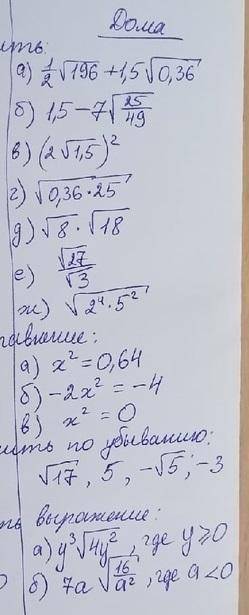 Дома
ить:
а) 1/2 √196 + 1,5 √0,36
б) 1,5 − 7 √(25/49)
в) (2√1,5)²
г) √(0,36 · 25)
д) √8 · √18
е) √27/√3
ж) √(2⁴ · 5²)
равнение:
а) x² = 0,64
б) −2x² = −4
в) x² = 0
ить по убыванию:
√17, 5, −√5; −3
ть выражение:
а) y³√(4y²), где y ⩾ 0
б) 7a √(16/a²), где a < 0